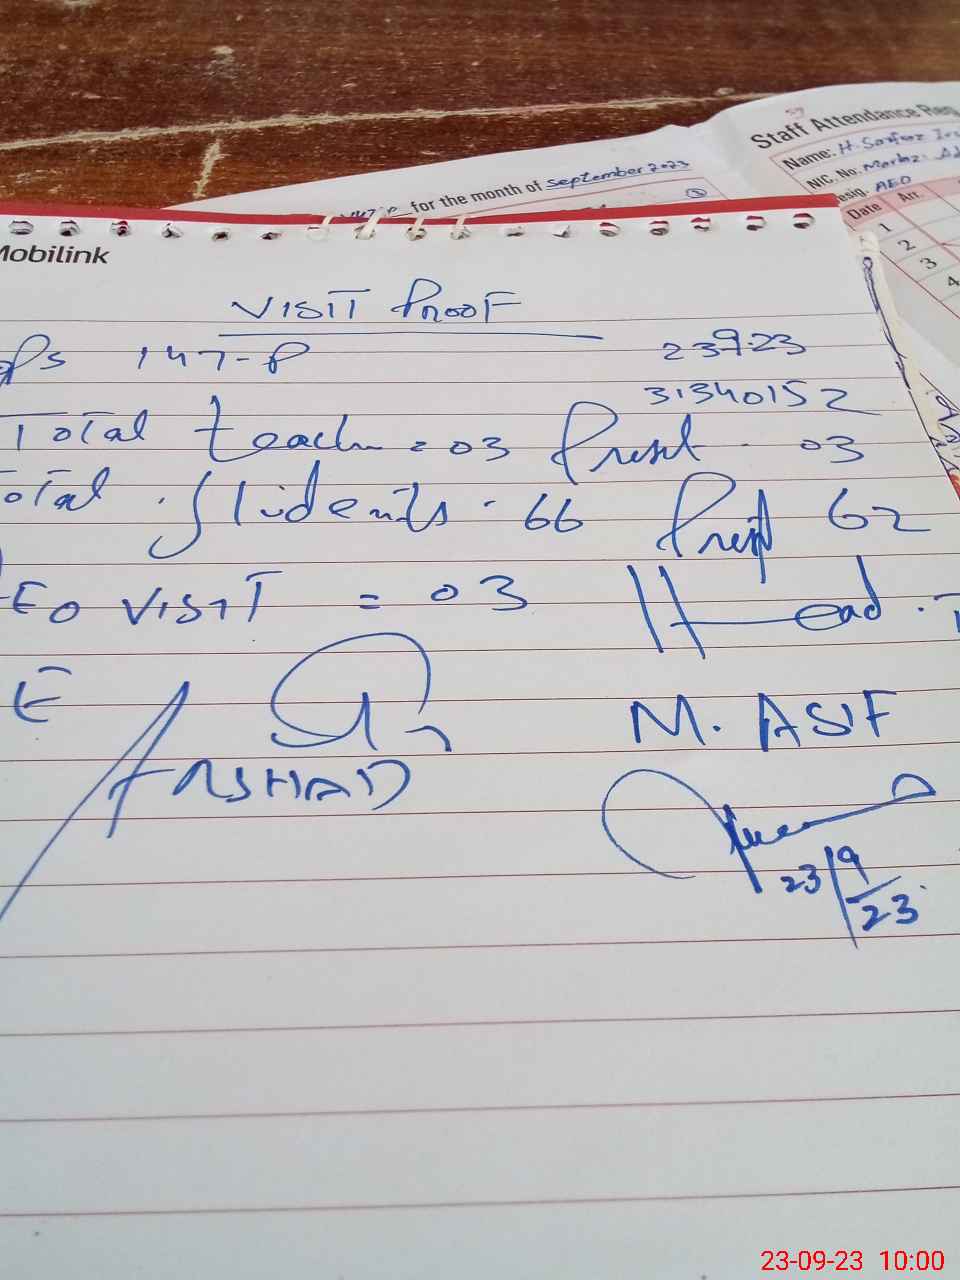 Staff Attendance Reg
Name: H. Sarfraz
NIC. No. Markaz:
esig. AEO
Date Arr.
1
2
3
4
for the month of September 2023
Mobilink
VISIT PROOF
PS 147-P 23.9.23
31340152
Total teach = 03 Prest - 03
Total Students - 66 Prest 62
EO VISIT = 03 Head . T
E
ARSHAD
M. ASIF
23/9/23
23-09-23 10:00